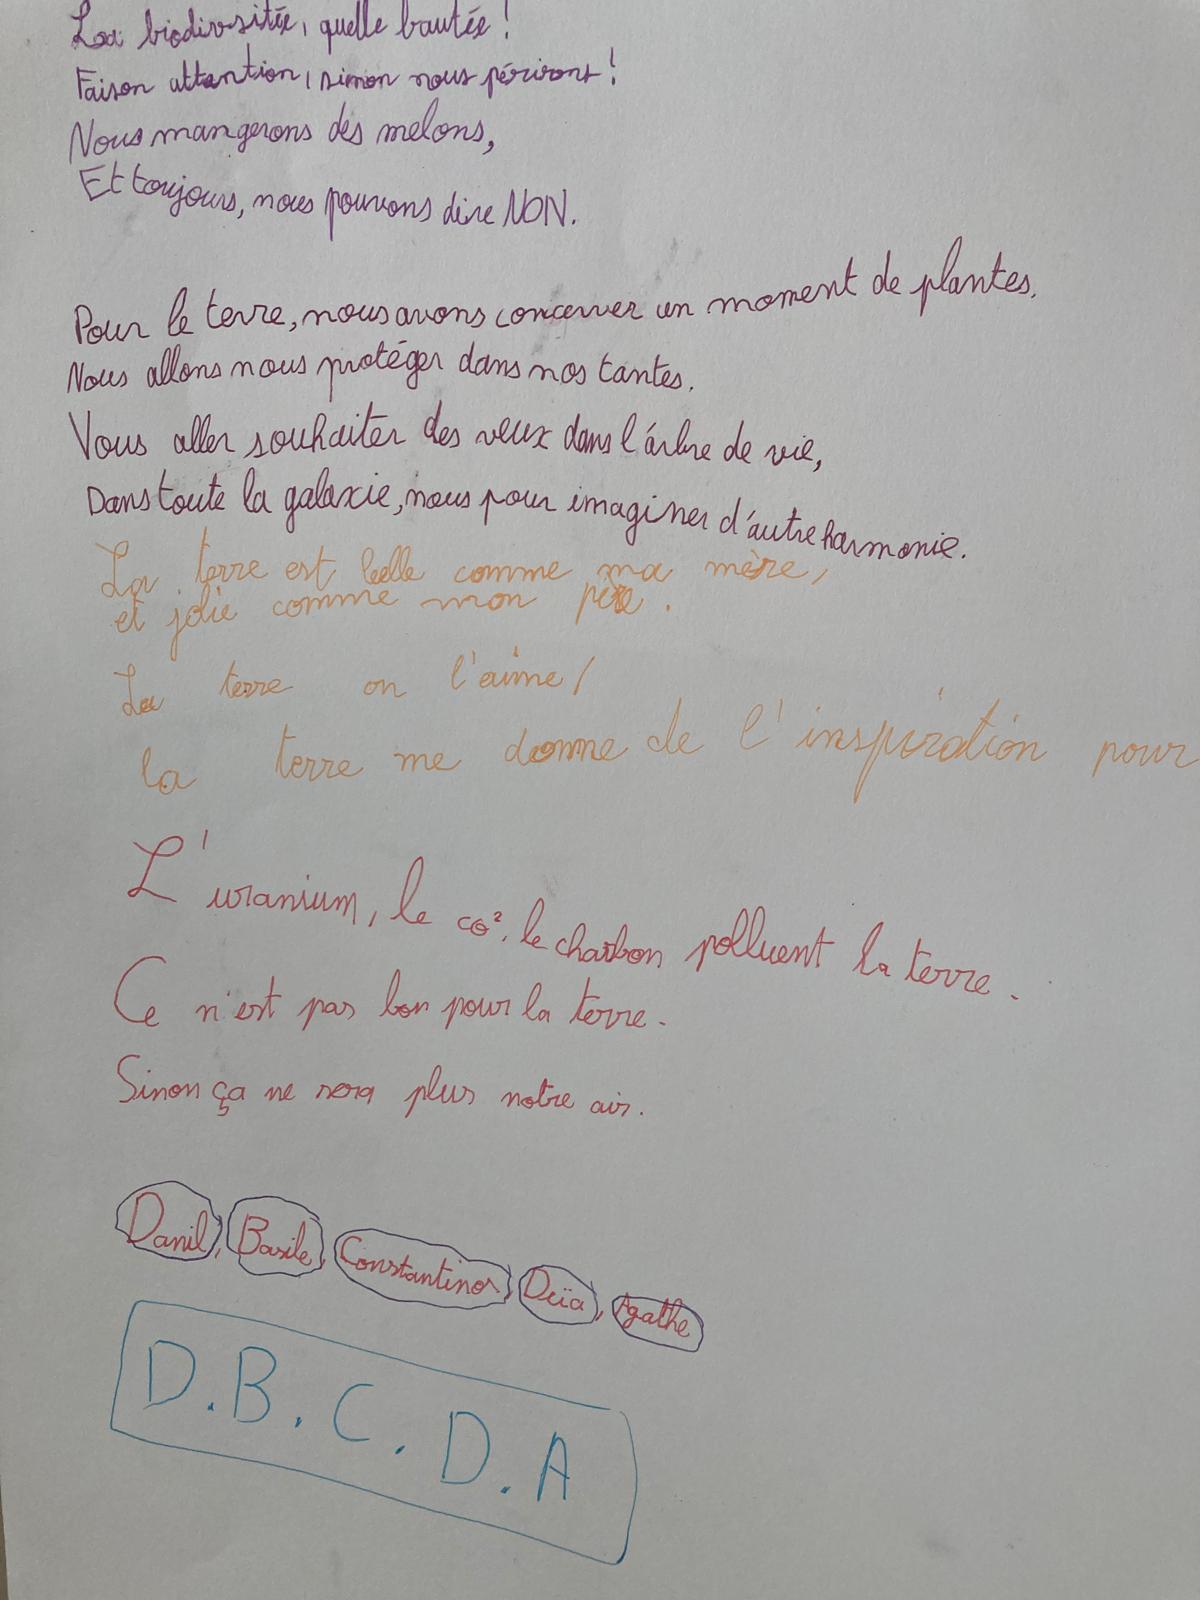 La biodiversitée, quelle bautée !
Faison attention, simon nous périrons !
Nous mangerons des melons,
Et toujours, nous pouvons dire NON.
Pour le terre, nous avons concerver un moment de plantes.
Nous allons nous protéger dans nos tantes.
Vous aller souhaiter des veux dans l'árbre de vie,
Dans toute la galaxie, nous pour imaginer d'autre harmonie.
La terre est belle comme ma mère,
et jolie comme mon père.
La terre on l'aime !
la terre me donne de l'inspiration pour
L'uranium, le co², le charbon polluent la terre.
Ce n'est pas bon pour la terre.
Sinon ça ne sera plus notre air.
Danil, Basile, Constantinos, Deïa, Agathe
D.B.C.D.A